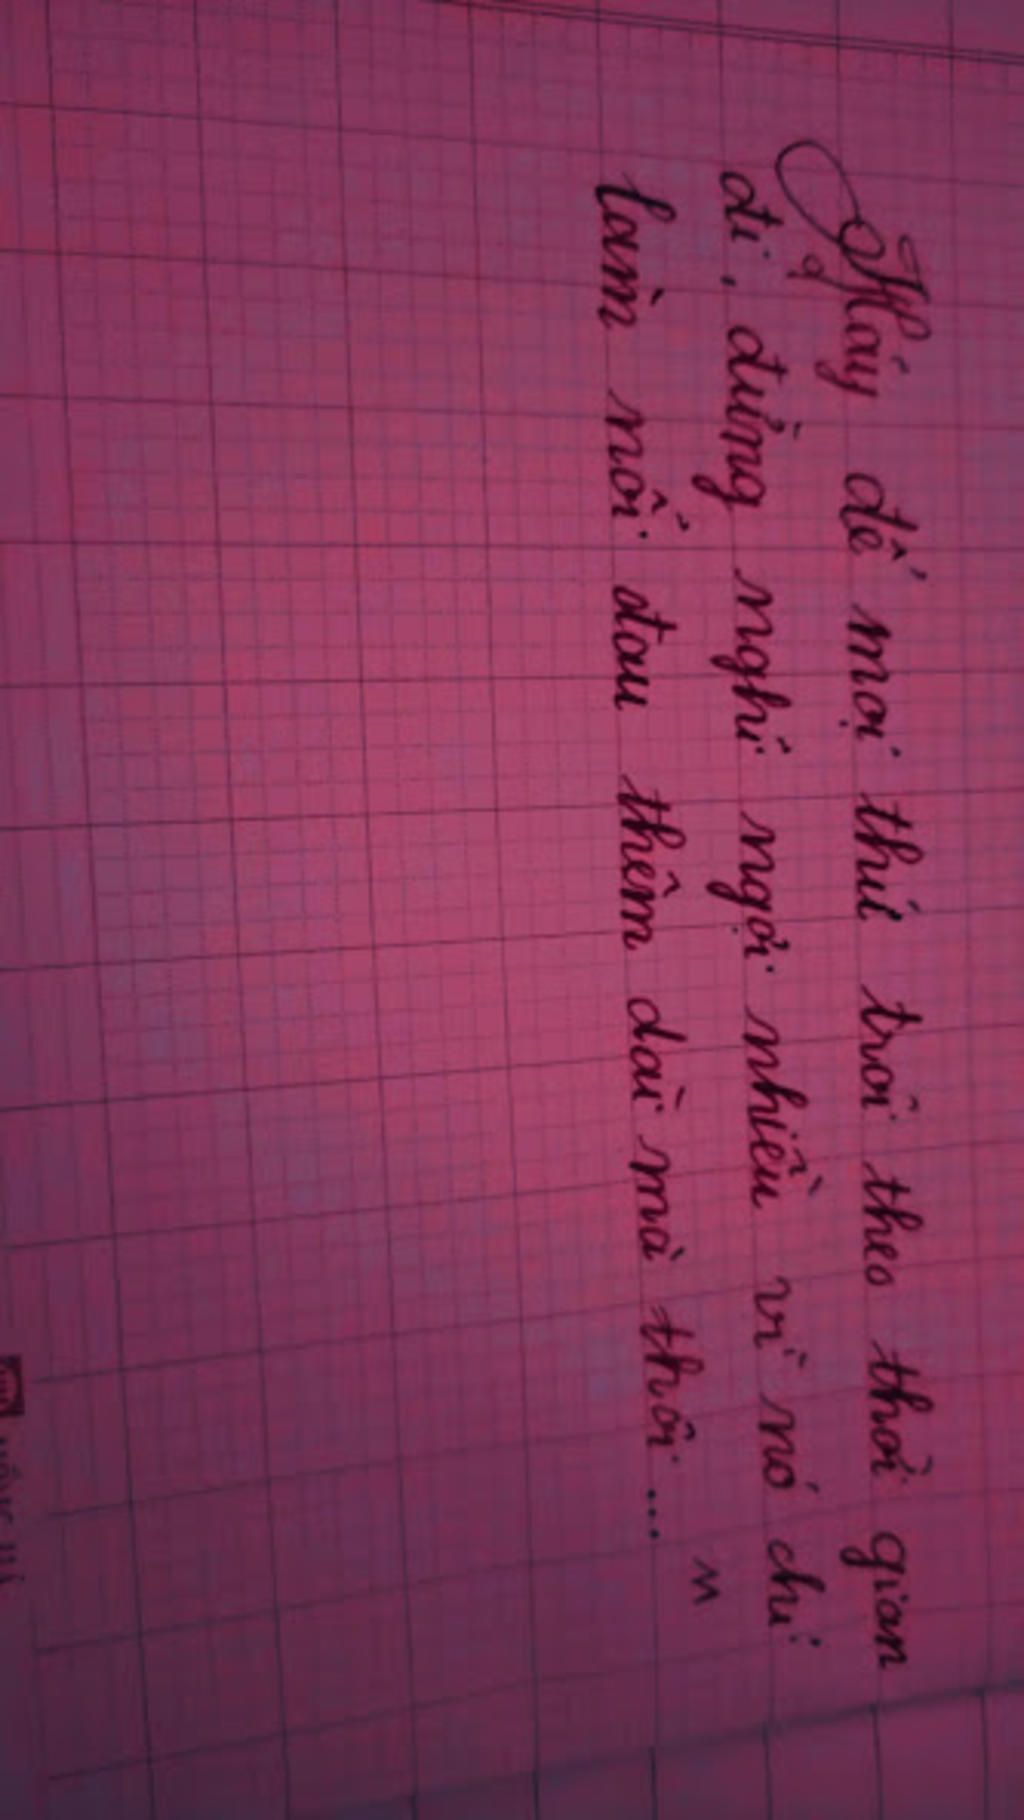 Hãy để mọi thứ trôi theo thời gian
đi, đừng nghĩ ngợi nhiều vì nó chỉ
làm nỗi đau thêm dài mà thôi ... "